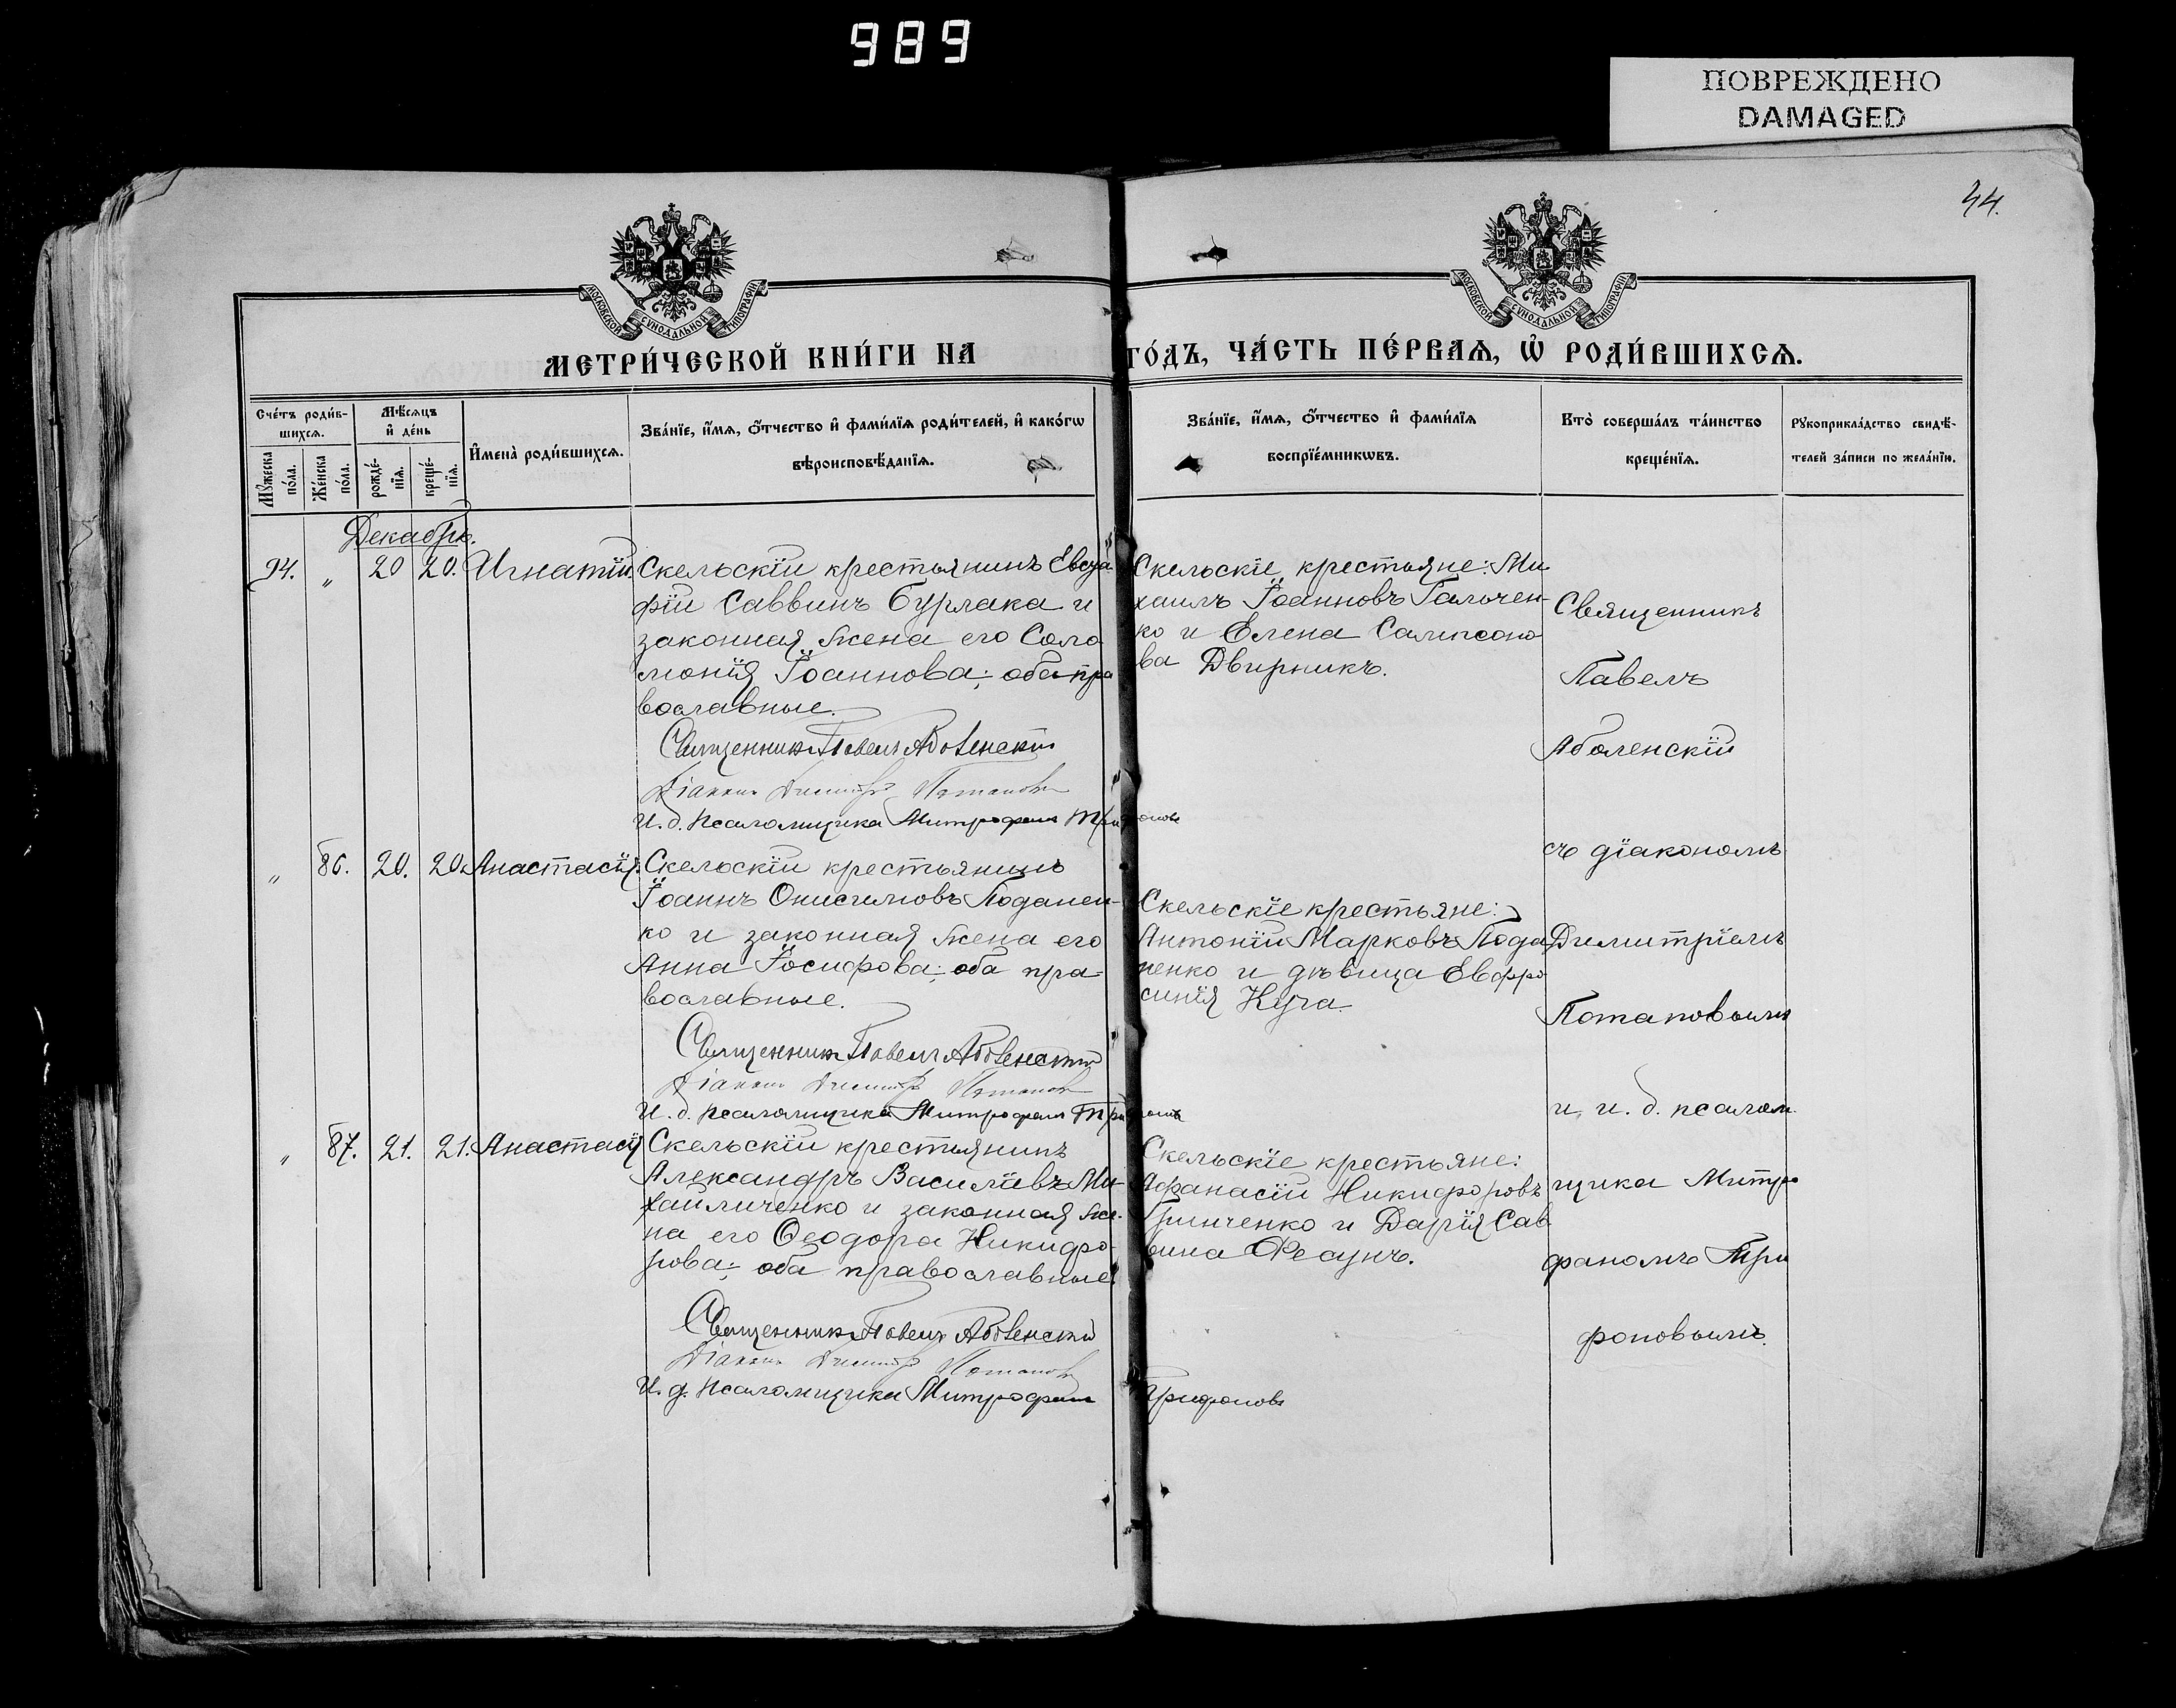 989
ПОВРЕЖДЕНО
DAMAGED
44.
МОСКОВСКОЙ СѴНОДАЛЬНОЙ ТИПОГРАФІИ
МОСКОВСКОЙ СѴНОДАЛЬНОЙ ТИПОГРАФІИ
МЕТРИ́ЧЕСКОЙ КНИ́ГИ НА ГО́ДЪ, ЧА́СТЬ ПЕ́РВАѦ, Ѡ҆ РОДИ́ВШИХСѦ.
Сче́тъ роди́в-
шихсѧ.
Мꙋ́жеска
по́ла.
Же́нска
по́ла.
Мѣ́сѧцъ
и҆ де́нь
рожде́-
нїѧ.
креще́-
нїѧ.
И҆мена̀ роди́вшихсѧ.
Зва́нїе, и҆́мѧ, ѻ҆́тчество и҆ фами́лїѧ роди́телей, и҆ како́гѡ
вѣроисповѣ́данїѧ.
Зва́нїе, и҆́мѧ, ѻ҆́тчество и҆ фами́лїѧ
воспрїе́мникѡвъ.
Кто̀ соверша́лъ та́инство
креще́нїѧ.
Рꙋкоприкла́дство свидѣ́-
телей за́писи по жела́нїю.
Декабрь.
94. „ 20 20. Игнатій.
Скельскій крестьянинъ Евста-
фій Саввинъ Бурлака и
законная жена его Соло
монія Іоаннова; оба пра
вославные.
Священникъ Павелъ Аболенскій
Діаконъ Димитрій Потаповъ
И. д. псаломщика Митрофанъ Трифоновъ
Скельскіе крестьяне: Ми
хаилъ Іоанновъ Гальчен-
ко и Елена Сампсоно
ва Двирникъ.
„ 86. 20. 20. Анастасія.
Скельскій крестьянинъ
Іоаннъ Онисимовъ Поданен-
ко и законная жена его
Анна Іосифова; оба пра-
вославные.
Священникъ Павелъ Аболенскій
Діаконъ Димитрій Потаповъ
И. д. псаломщика Митрофанъ Трифоновъ
Скельскіе крестьяне:
Антоній Марковъ Пода
ненко и дѣвица Евфро
синія Куча.
„ 87. 21. 21. Анастасія
Скельскій крестьянинъ
Александръ Василіевъ Ми-
хайличенко и законная же-
на его Ѳеодора Никифо-
рова; оба православные
Священникъ Павелъ Аболенскій
Діаконъ Димитрій Потаповъ
И. д. псаломщика Митрофанъ Трифоновъ
Скельскіе крестьяне:
Афанасій Никифоровъ
Гринченко и Дарія Сав
вина Фесунъ.
Священникъ
Павелъ
Аболенскій
съ діакономъ
Димитріемъ
Потаповымъ
и и. д. псалом
щика Митро
фаномъ Три
фоновымъ.